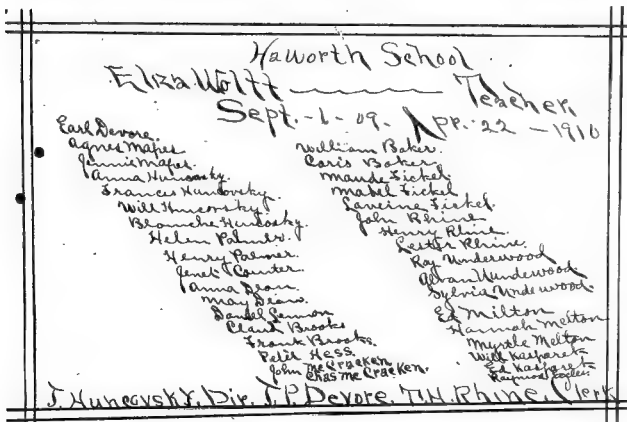 Haworth School
Eliza Woltt Teacher
Sept. - 1 - 09. Apr. 22 - 1910
Earl Devore.
Agnes Mapes
Jennie Mapes.
Anna Huncovsky.
Frances Huncovsky.
Will Huncovsky.
Blanche Huncosky.
Helen Palmer.
Henry Palmer.
Jenet Counter.
Anna Dean.
May Dean.
Daniel Lennon
Claud Brooks
Frank Brooks.
Petie Hess.
John McCracken
Chas McCracken.
William Baker.
Coris Baker.
Maude Fickel.
Mabel Fickel
Laveine Fickel.
John Rhine
Henry Rhine.
Lester Rhine.
Ray Underwood
Alvan Uundewood
Sylvia Undewood.
Ed Milton
Hannah Melton
Myrtle Melton
Will Kasparek
Ed Kasparek
Raymond
J. Huncovsky, Dir. J.P. Devore. T.H. Rhine, Clerk